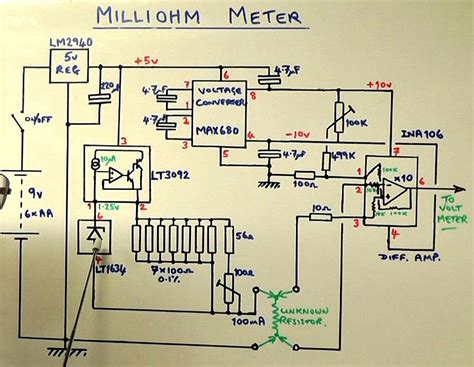 MILLIOHM METER
LM2940
5V
REG
+5V
220µF
4·7µF
4·7µF
4·7µF
7
1
2
6
8
4
5
VOLTAGE
CONVERTER
MAX680
+10V
-10V
100K
499K
4·7µF
100Ω
INA106
7
1
2
3
6
4
100K
×10
10K
10K
100K
TO
VOLT
METER
DIFF. AMP.
ON/OFF
9V
6×AA
3
10µA
LT3092
1
1·25V
2
6
4
LT1634
7×100Ω
0.1%
56Ω
100Ω
100mA
10Ω
UNKNOWN
RESISTOR.